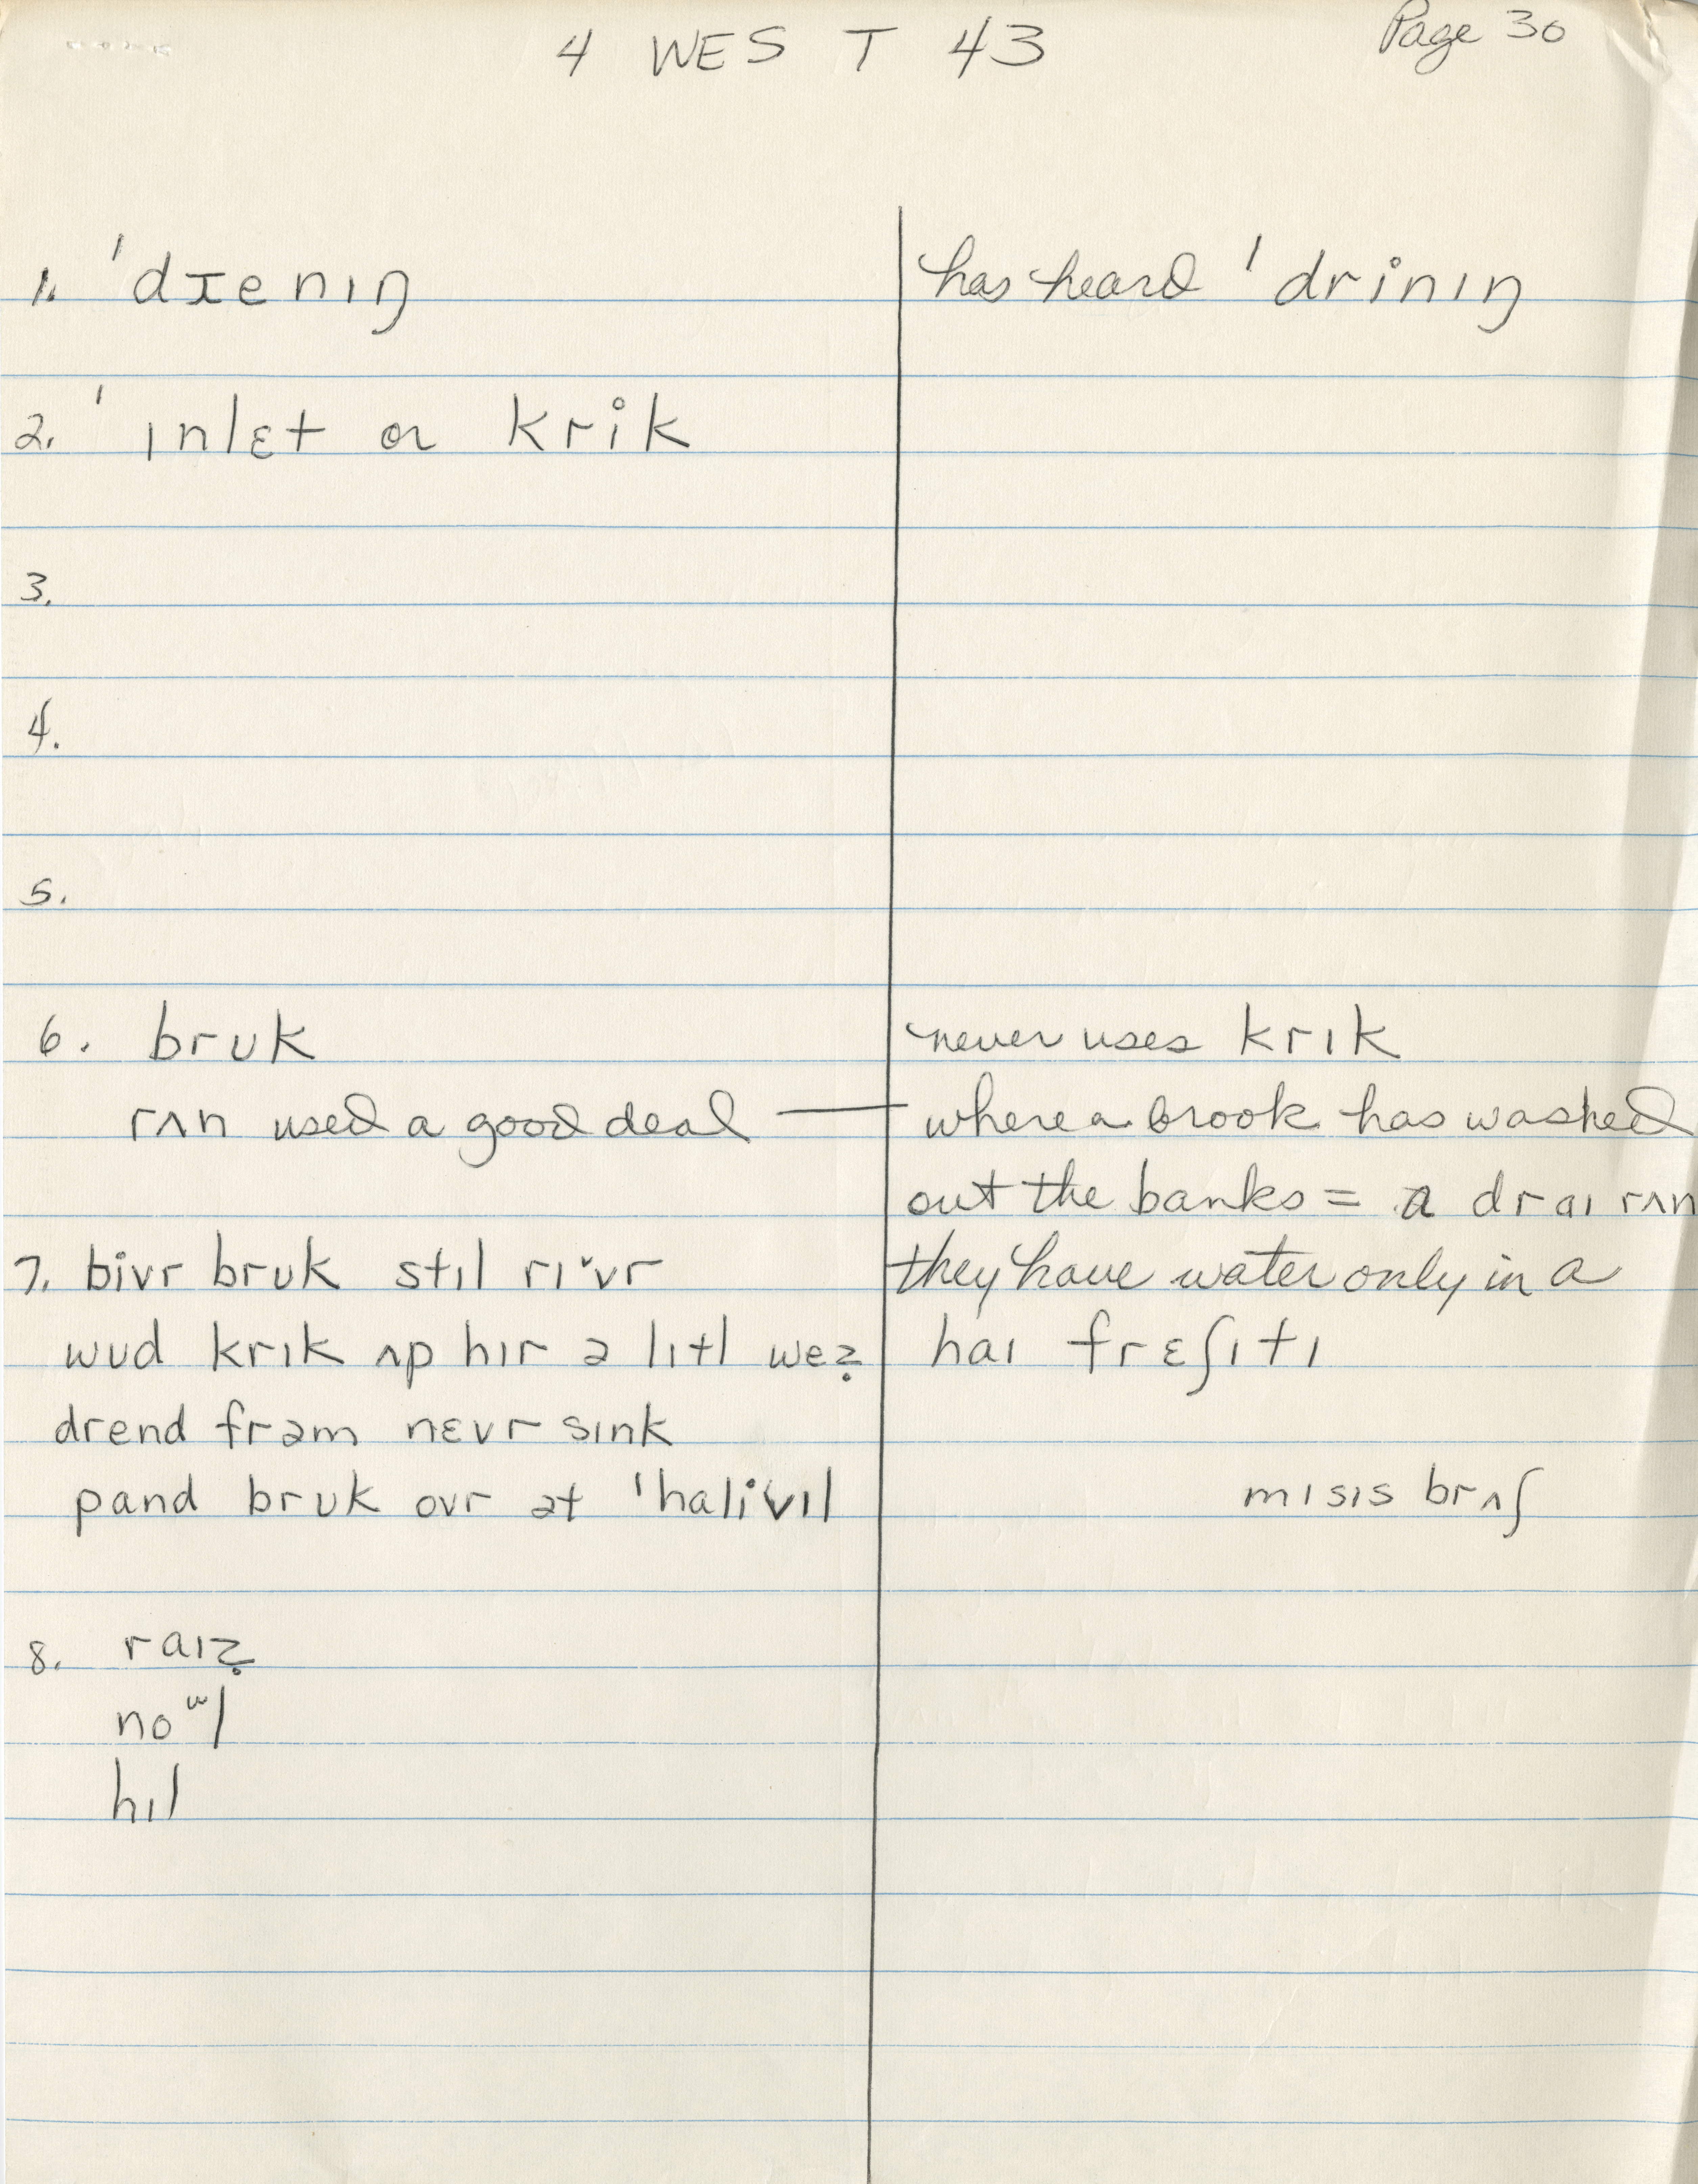 4 WEST 43
Page 30
1. ˈdɪenɪŋ
has heard ˈdrinɪŋ
2. ˈɪnlɛt or krik
3.
4.
5.
6. brʊk
never uses krɪk
rʌn used a good deal — where a brook has washed
out the banks = a draɪ rʌn
7. bivr brʊk stɪl rɪˇvr
they have water only in a
wʊd krɪk ʌp hɪr ə lɪtl wez̩
haɪ frɛʃɪtɪ
drend frəm nɛvrsɪnk
pand brʊk ovr ət ˈhalivɪl
mɪsɪs brʌʃ
8. raɪz̩
noʷl
hɪl